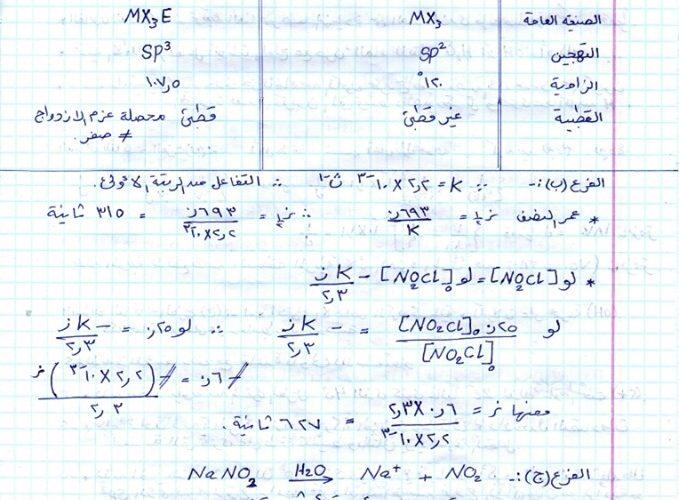 الصيغة العامة MX₃ MX₃E
التهجين SP² SP³
الزاوية ١٢٠° ١٠٧,٥
القطبية غير قطبي قطبي محصلة عزم الازدواج ≠ صفر.
الفرع (ب):- ∵ K = ٢,٢ × ١٠⁻³ ث⁻¹ ∴ التفاعل من الرتبة الاولى.
* عمر النصف نز½ = ٠,٦٩٣ / K ∴ نز½ = ٠,٦٩٣ / ٢,٢×١٠⁻³ = ٣١٥ ثانية
* لو [NO₂Cl] = لو [NO₂Cl]₀ - K ز / ٢,٣
لو ٠,٢٥ [NO₂Cl]₀ / [NO₂Cl]₀ = - K ز / ٢,٣ ∴ لو ٠,٢٥ = - K ز / ٢,٣
- ٠,٦ = - (٢,٢ × ١٠⁻³) ز / ٢,٣
ومنها ز = ٠,٦ × ٢,٣ / ٢,٢×١٠⁻³ = ٦٢٧ ثانية.
الفرع (ج):- NaNO₂ H₂O→ Na⁺ + NO₂⁻